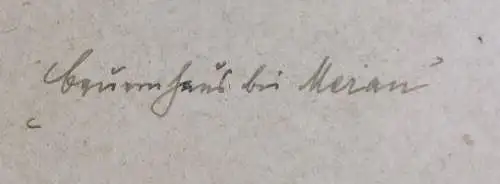 Bauernhaus bei Meran